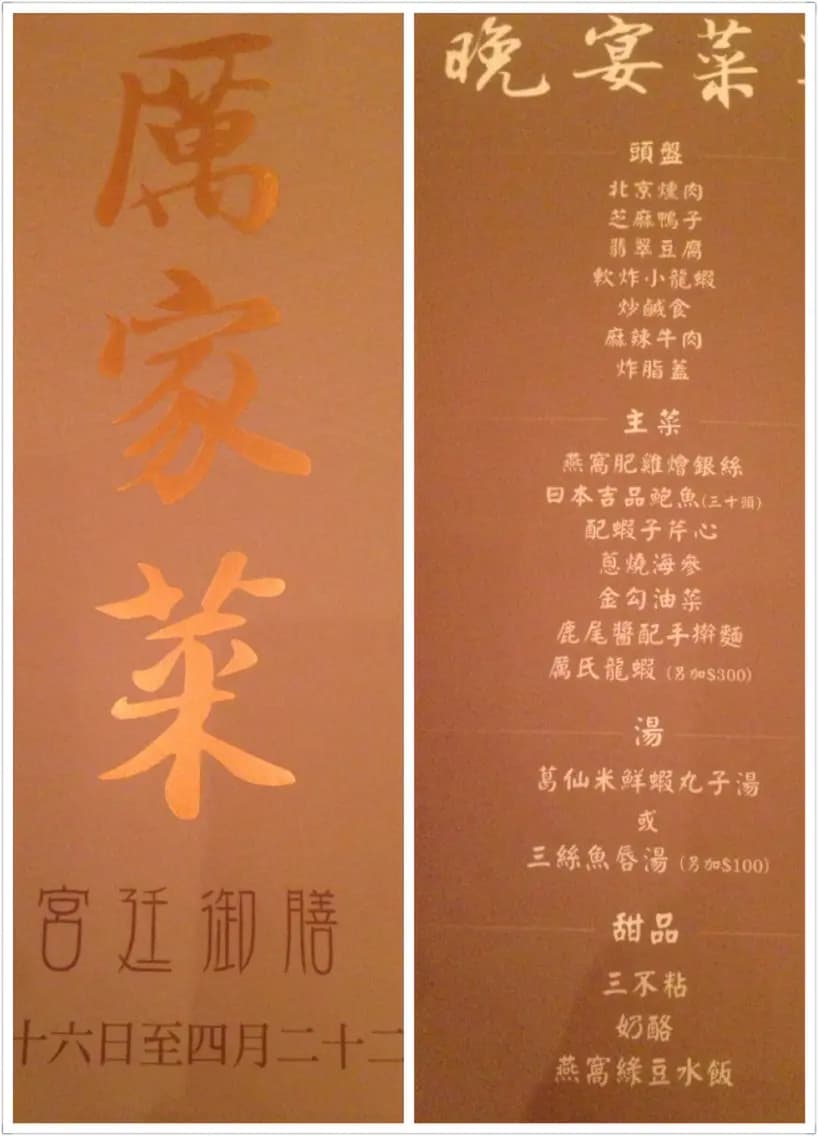 厲家菜
宮廷御膳
十六日至四月二十二
晚宴菜
頭盤
北京燻肉
芝麻鴨子
翡翠豆腐
軟炸小龍蝦
炒鹹食
麻辣牛肉
炸脂蓋
主菜
燕窩肥雞燴銀絲
日本吉品鮑魚(三十頭)
配蝦子芹心
蔥燒海參
金勾油菜
鹿尾醬配手擀麵
厲氏龍蝦 (另加$300)
湯
葛仙米鮮蝦丸子湯
或
三絲魚唇湯 (另加$100)
甜品
三不粘
奶酪
燕窩綠豆水飯